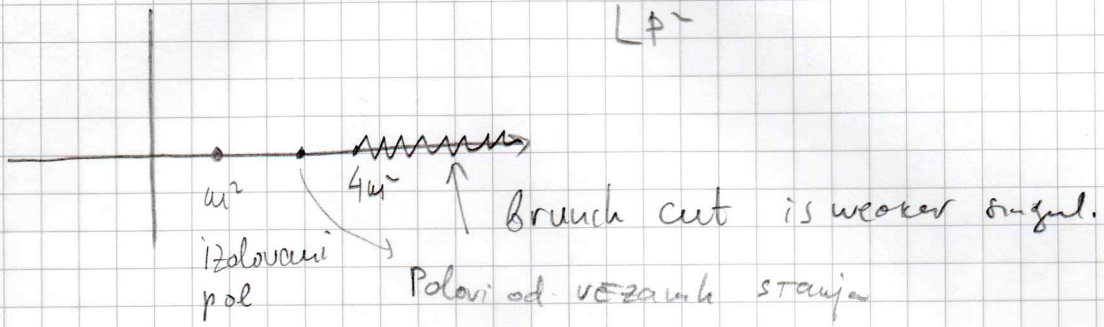 p²
m²
4m²
Brunch cut is weaker singul.
izolovani
pol
Polovi od vezanih stanja